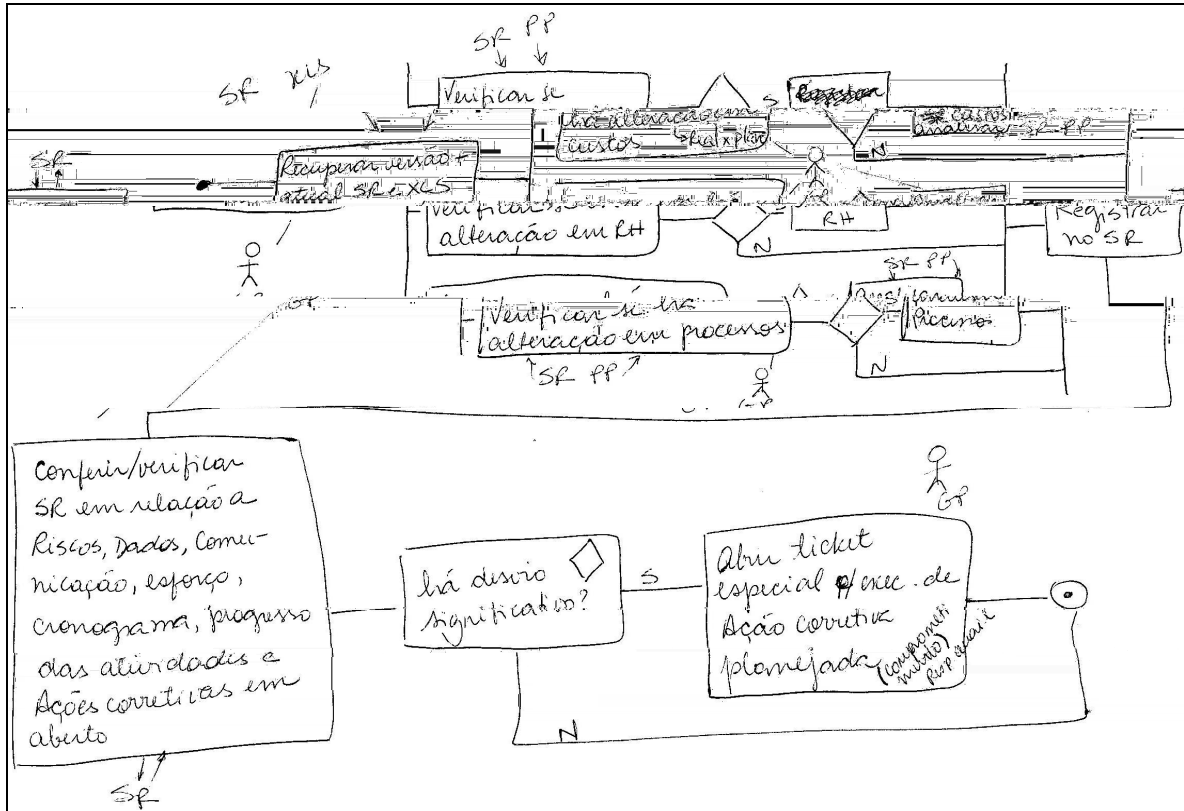 SR PP
SR XLS
Verificar se
S
há alteração em
custos
Real x plan
custos
SR PP
N
SR
Recuperar versão +
atual SR e XLS
Verificar se
alteração em RH
RH
N
Registrar
no SR
SR PP
GP
Verificar se há
alteração em processos
S
Processos
N
SR PP
GP
Conferir/verificar
SR em relação a
Riscos, Dados, Comu-
nicação, esforço,
cronograma, progresso
das atividades e
Ações corretivas em
aberto
SR
há desvio
significativo?
S
N
GP
Abrir ticket
especial p/ exec. de
Ação corretiva
planejada
(comprometi
mento)
Resp. email